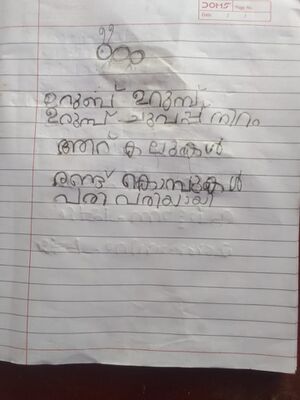 DOMS Page No.
Date / /
ഉറുമ്പ് ഉറുമ്പ്
ഉറുമ്പ് ചുവപ്പ് നിറം
ആറ് കാലുകൾ
രണ്ട് കൊമ്പുകൾ
പതി പതിയായി